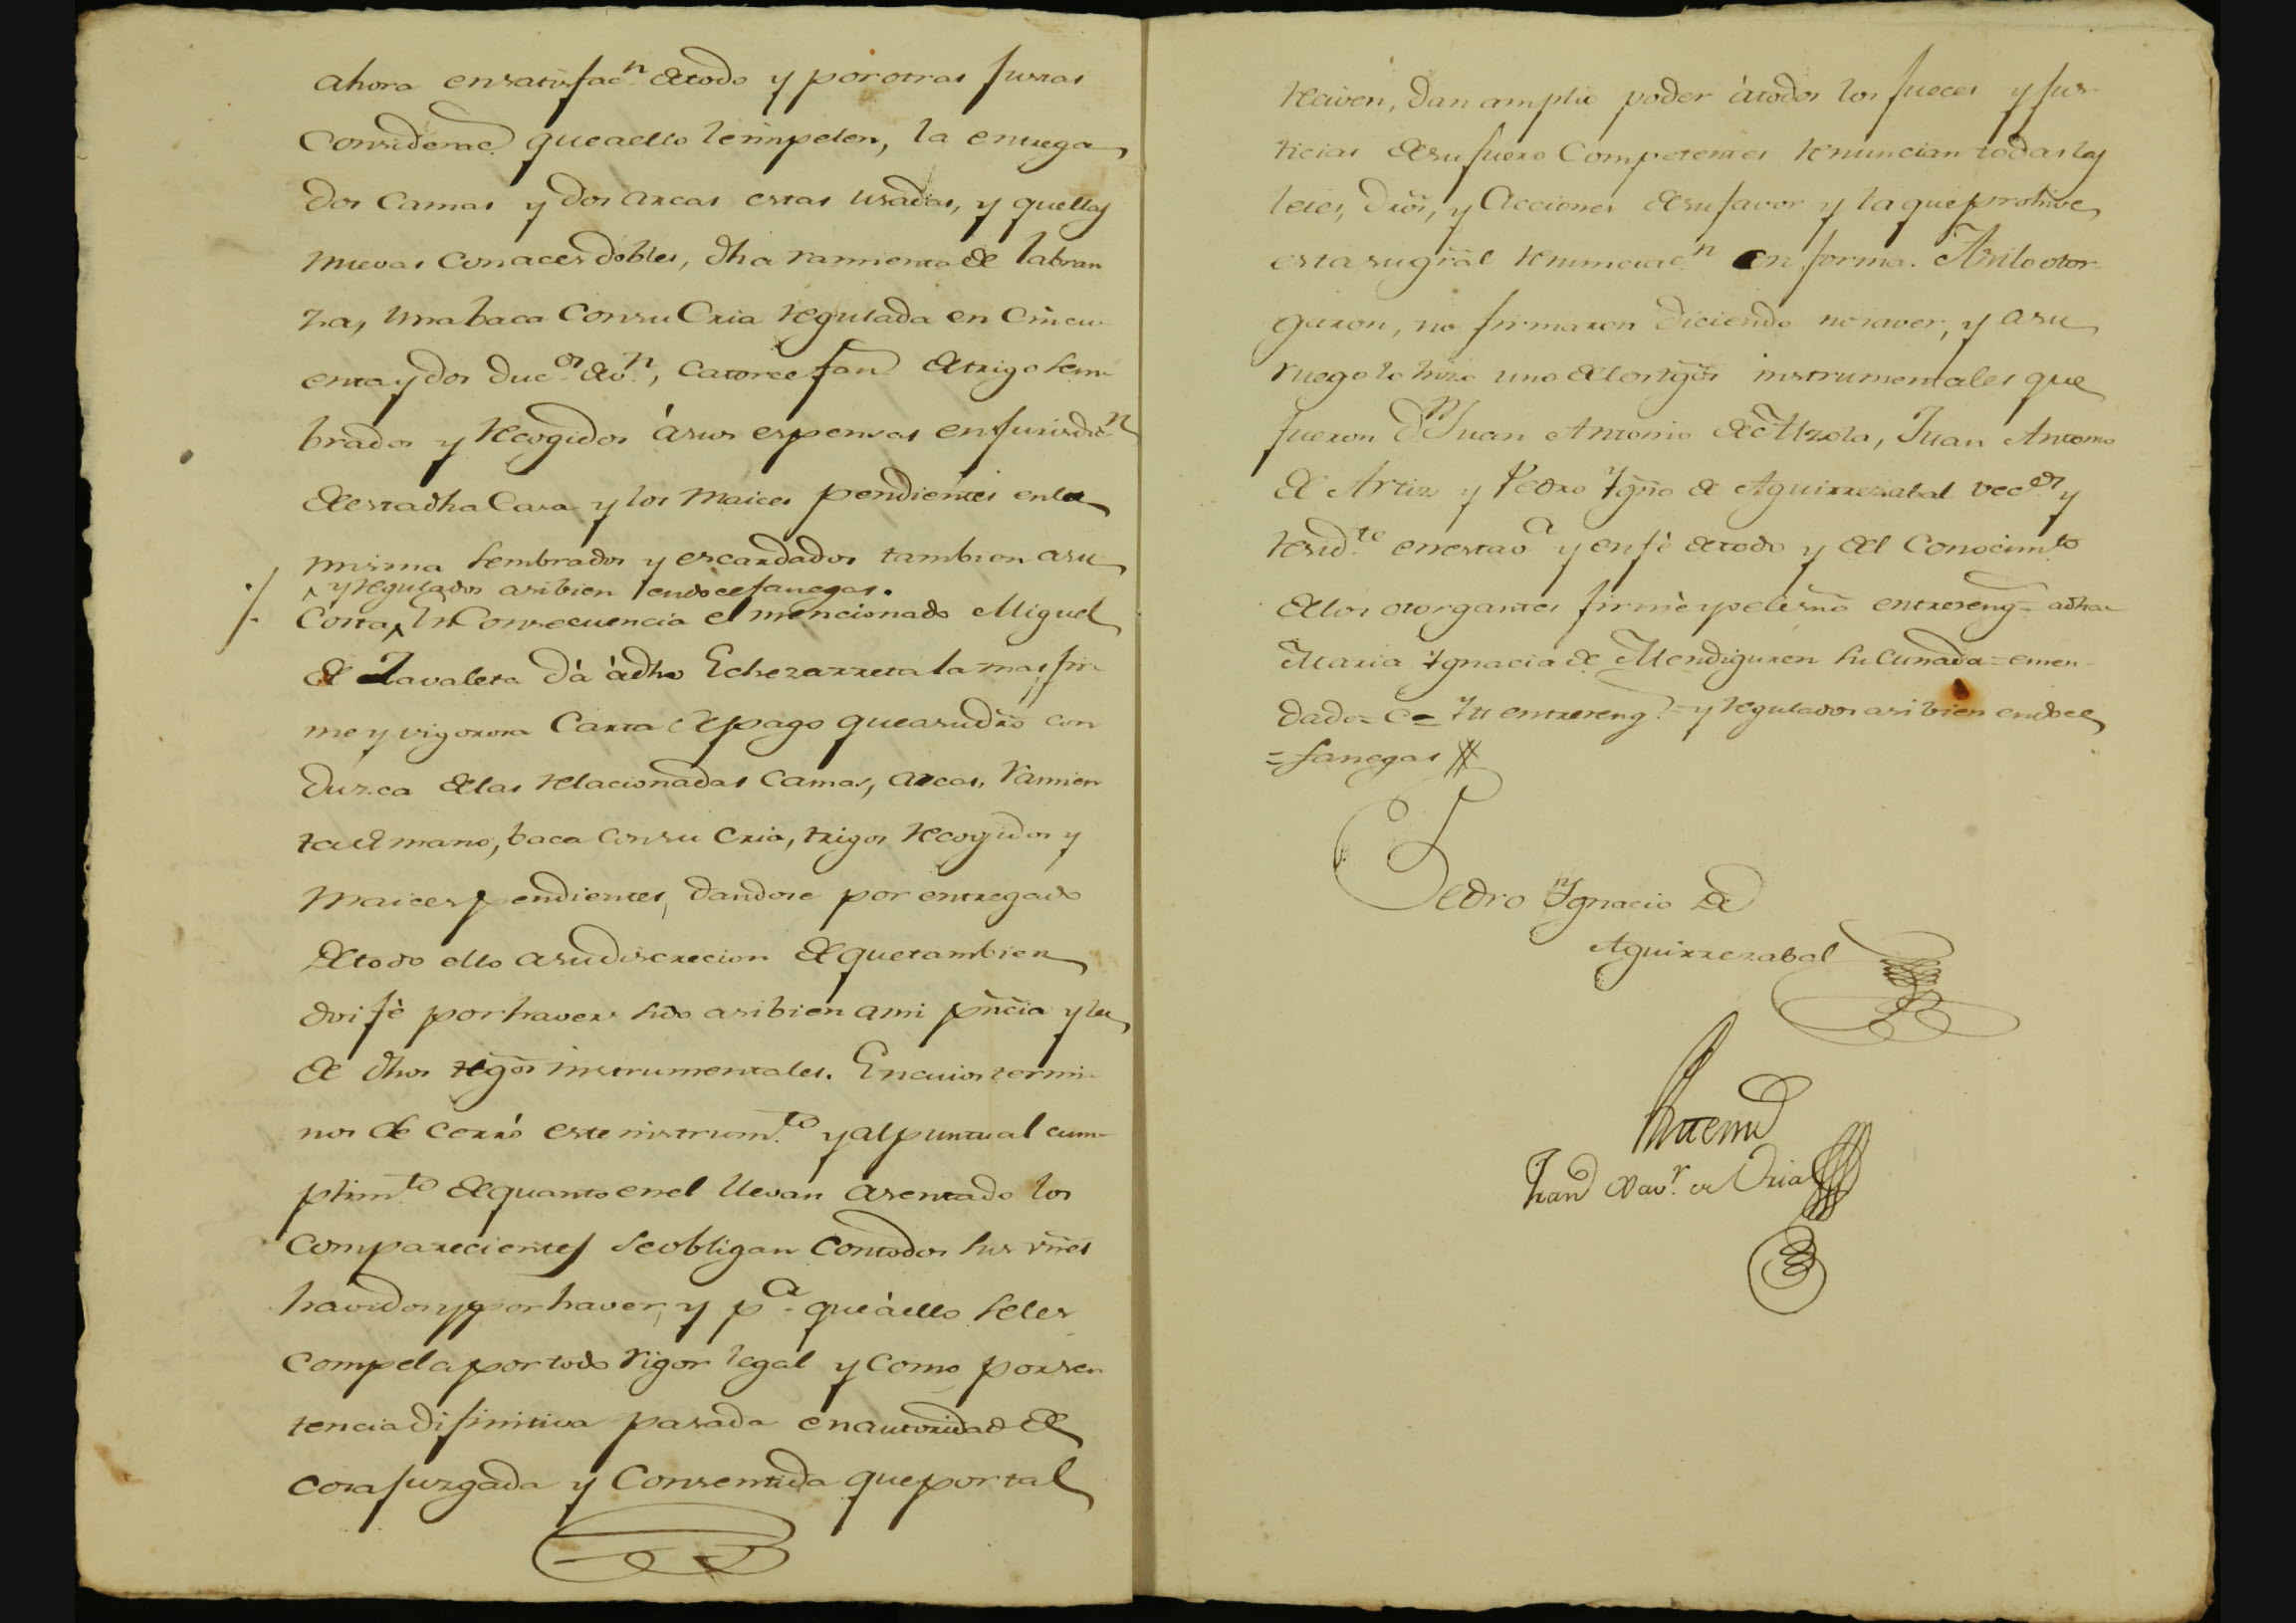 ahora ensatisfac.n detodo y por otras justas
Considerac.s queaello leimpelen, la entrega
dos Camas y dos arcas estas usadas, y quellas
nuevas Conacesdobles, dha ramienta de labran
za, una baca Consu Cria regulada en Cincu-
enta y dos Duc.os dev.n, Catorce fan.s detrigo sem-
brados y recogidos ásus espensas enjurisdic.n
deestadha Casa y los Maices pendientes enla
misma sembrados y escardados tambien asu
y regulados asibien endocefanegas.
Costa, En Consecuencia el mencionado Miguel
de Zavaleta dá ádho Echezarreta la mas fir-
me y vigorosa Carta depago queasudro con
duzca delas relacionadas Camas, arcas, ramien
ta de mano, baca Consu Cria, trigos recogidos y
Maices pendientes, dandose por entregado
detodo ello asudiscrecion de quetambien
doi fè porhaver sido asibien ami pñcia y la
de dhos tgõs instrumentales. Encuios termi-
nos se cerró este instrum.to y alpuntual cum-
plim.to dequanto enel llevan asentado los
Comparecientes seobligan Contodos sus vñes
havidos y por haver, y p.a queàello seles
Compela portodo rigor legal y Como porsen
tencia difinitiva pasada enautoridad de
cosajuzgada y Consentida que por tal
reciven, dan amplio poder àtodos los jueces y jus-
ticias desufuero Competentes renuncian todas las
leies, dros, y Acciones desufavor y la queprohive
estasugrãl renunciac.n en forma. Asilo otor-
garon, no firmaron diciendo nosaver, y asu
ruego lo hizo uno delos tgõs instrumentales que
fueron d.n Juan Antonio de Alzola, Juan Antonio
de Artiz y Pedro Ygñio de Aguirrezabal vec.os y
resid.te enestav.a y enfè detodo y del Conocim.to
delos otorgantes firmè ypelèsmõ entrereng.s = adha
Maria Ygnacia de Mendiguren su Cunada = emen-
dado = c = Ytt entrereng.s = y regulados asi bien endoce
= fanegas
Pedro Ygnacio de
Aguirrezabal
Antemi
Fran.co Xav.r de Oria